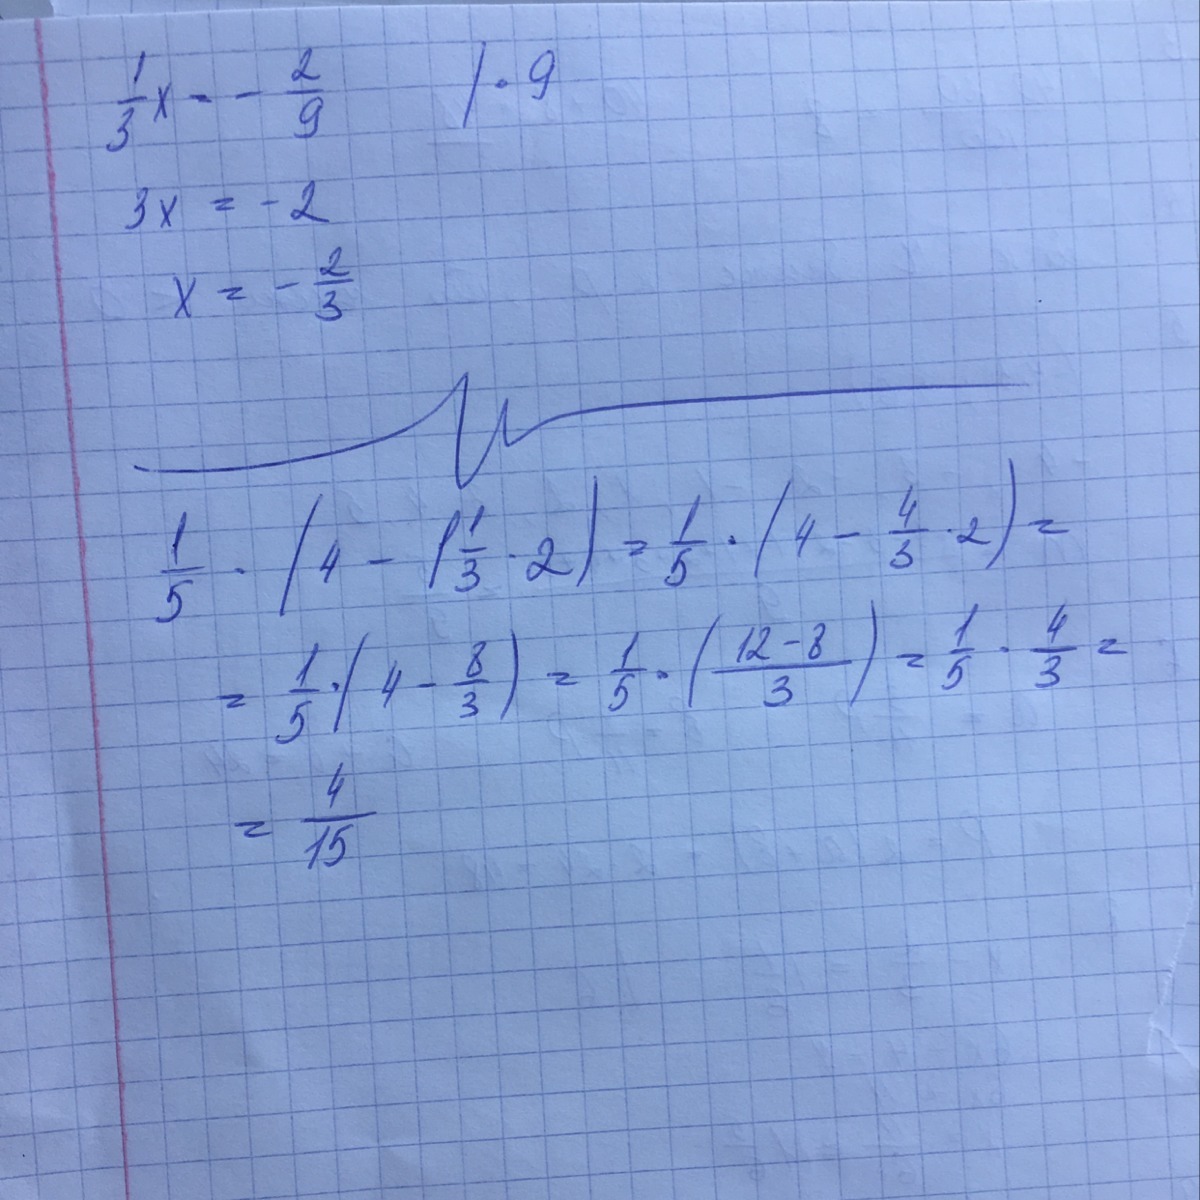 1/3 x = - 2/9 | · 9
3x = -2
x = - 2/3
1/5 · (4 - 1 1/3 · 2) = 1/5 · (4 - 4/3 · 2) =
= 1/5 · (4 - 8/3) = 1/5 · ((12 - 8)/3) = 1/5 · 4/3 =
= 4/15